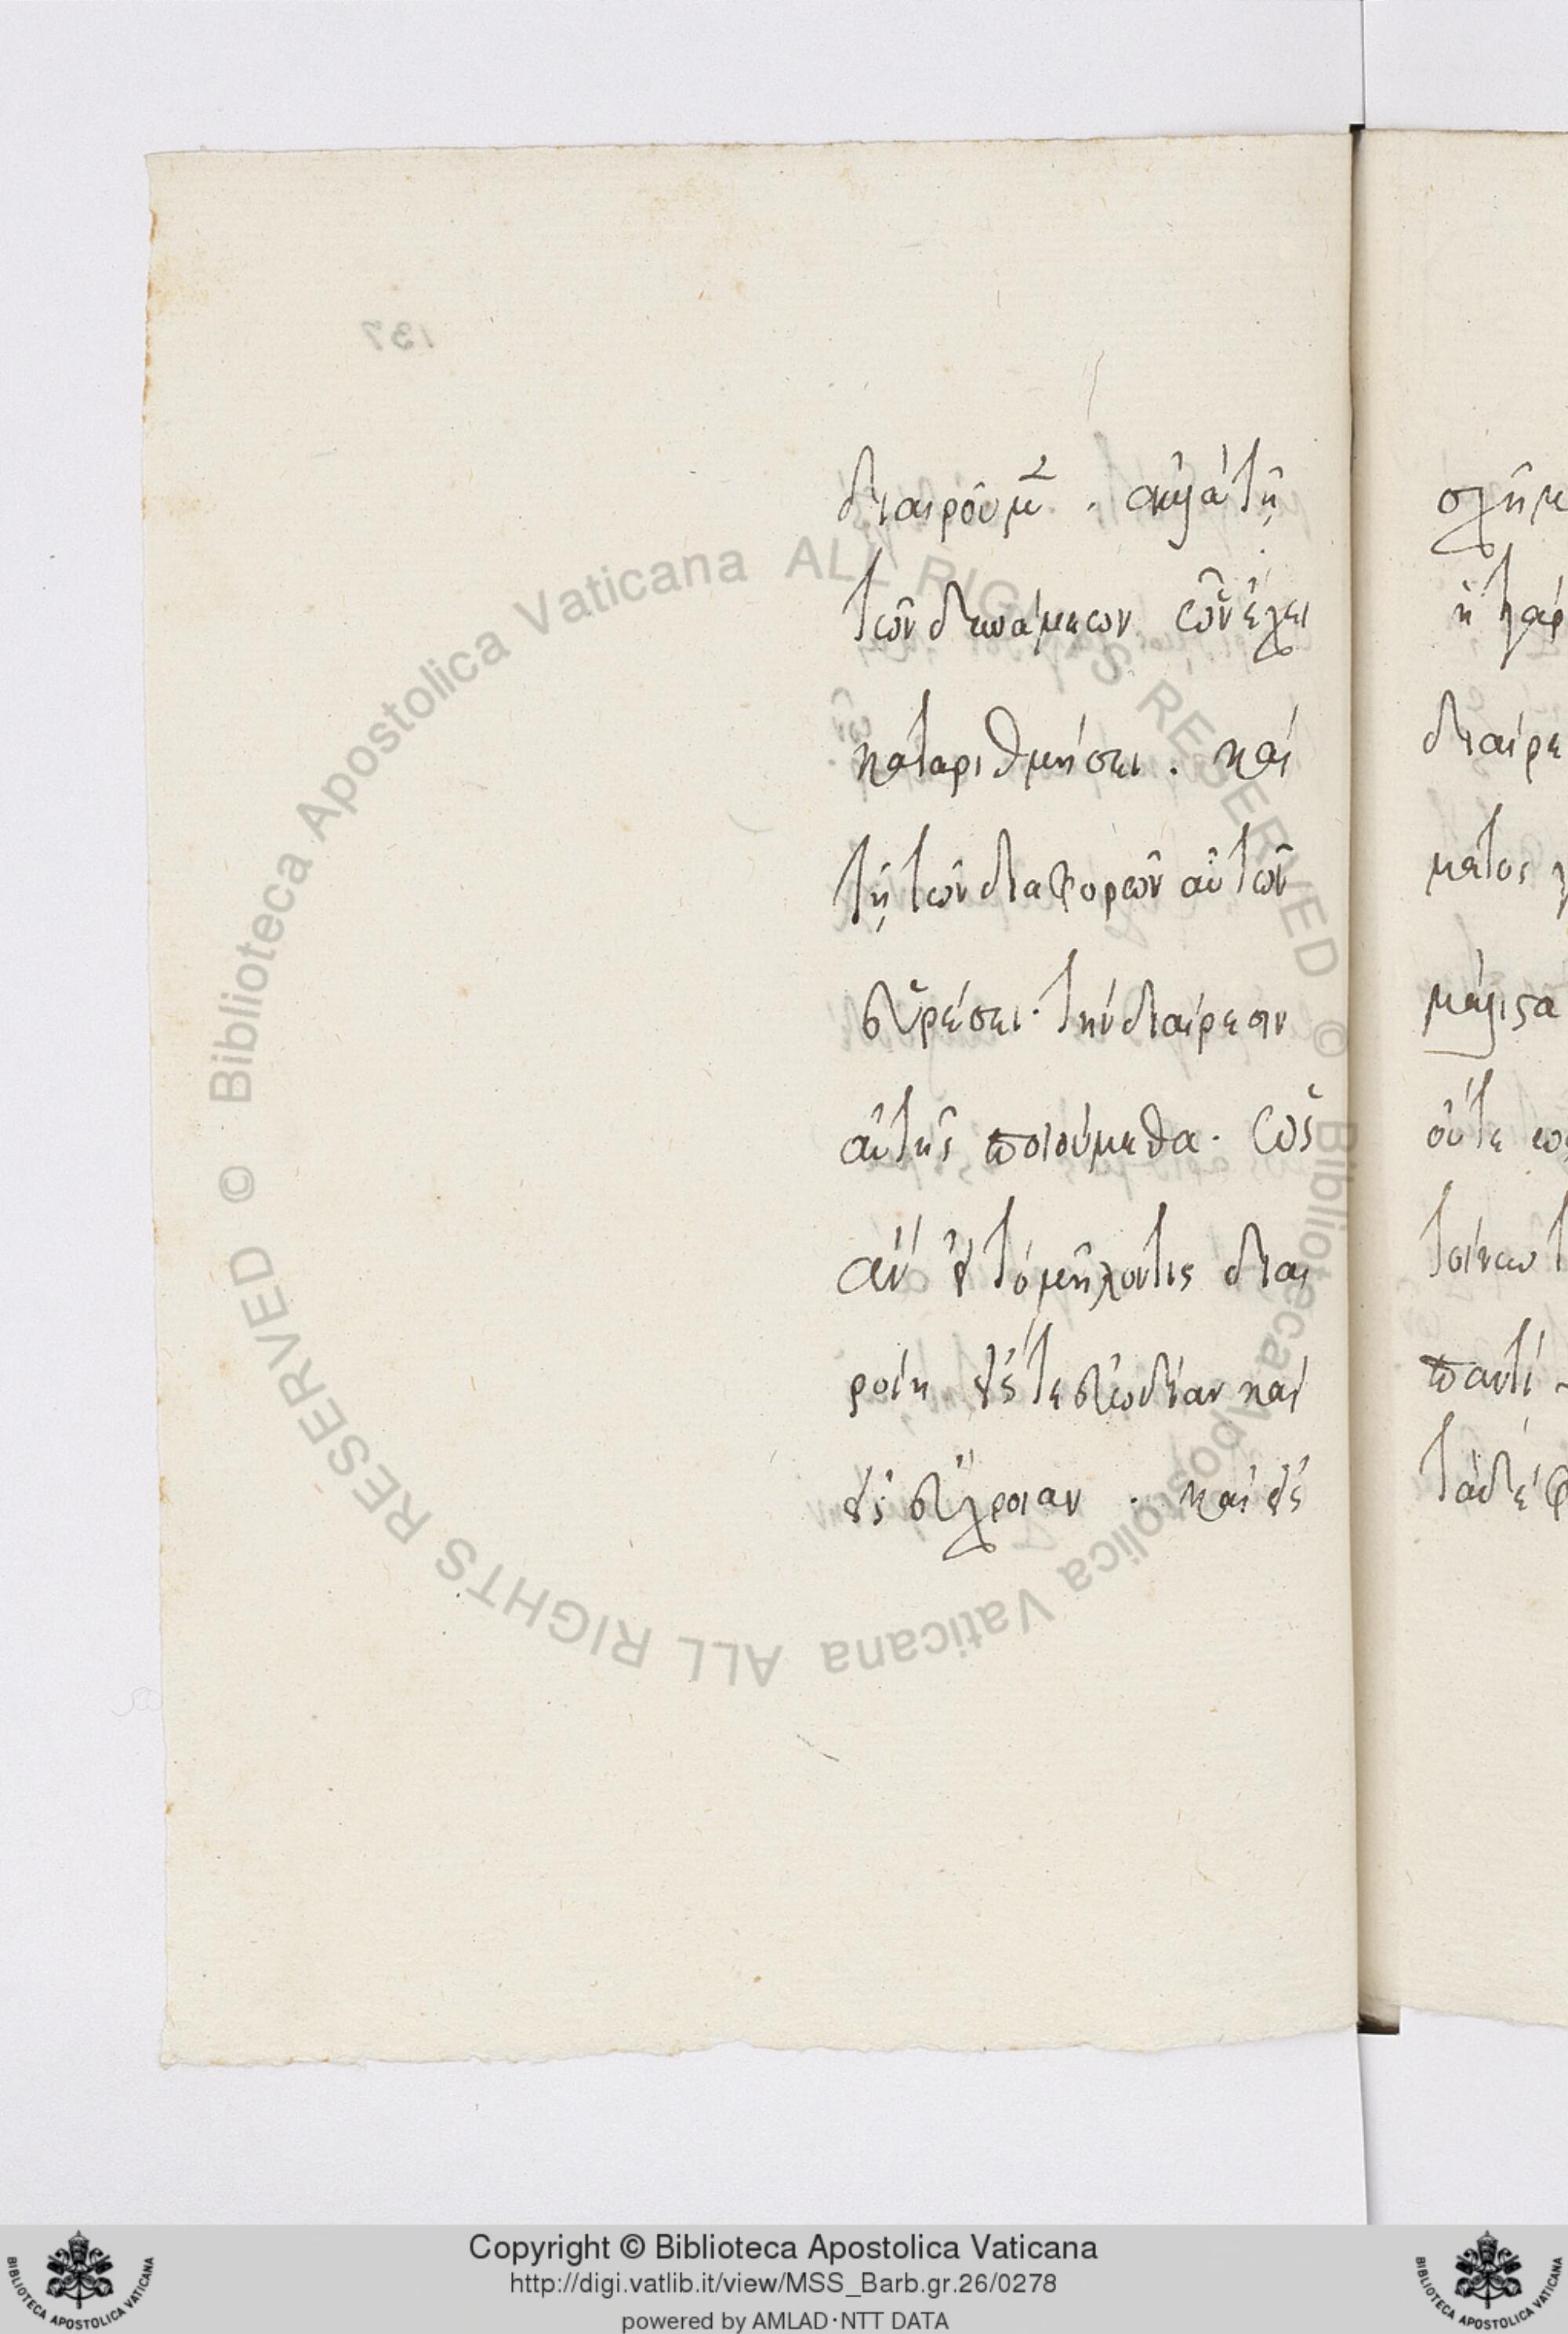 137
διαιρούμ̅ . ἀλλὰ τῇ
τῶν δυνάμεων ὧν ἔχει
καταριθμήσει . καὶ
τῇ τῶν διαφορῶν αὐτῶν
εὑρέσει · τὴν διαίρεσιν
αὐτῆς ποιούμεθα · ὡς
ἂν εἰ τὸ μῆλον τις διαι
ροίη εἴς τε εὐωδίαν καὶ
εἰς εὔχροιαν . καὶ εἰς
σχῆμ
ἡ γὰρ
διαίρε
ματος
μάλιστα
οὔτε
τοίνυν
παντὶ
τὰ δὲ
© Biblioteca Apostolica Vaticana ALL RIGHTS RESERVED © Biblioteca Apostolica Vaticana ALL RIGHTS RESERVED
Copyright © Biblioteca Apostolica Vaticana
http://digi.vatlib.it/view/MSS_Barb.gr.26/0278
powered by AMLAD·NTT DATA
BIBLIOTECA APOSTOLICA VATICANA
BIBLIOTECA APOSTOLICA VATICANA